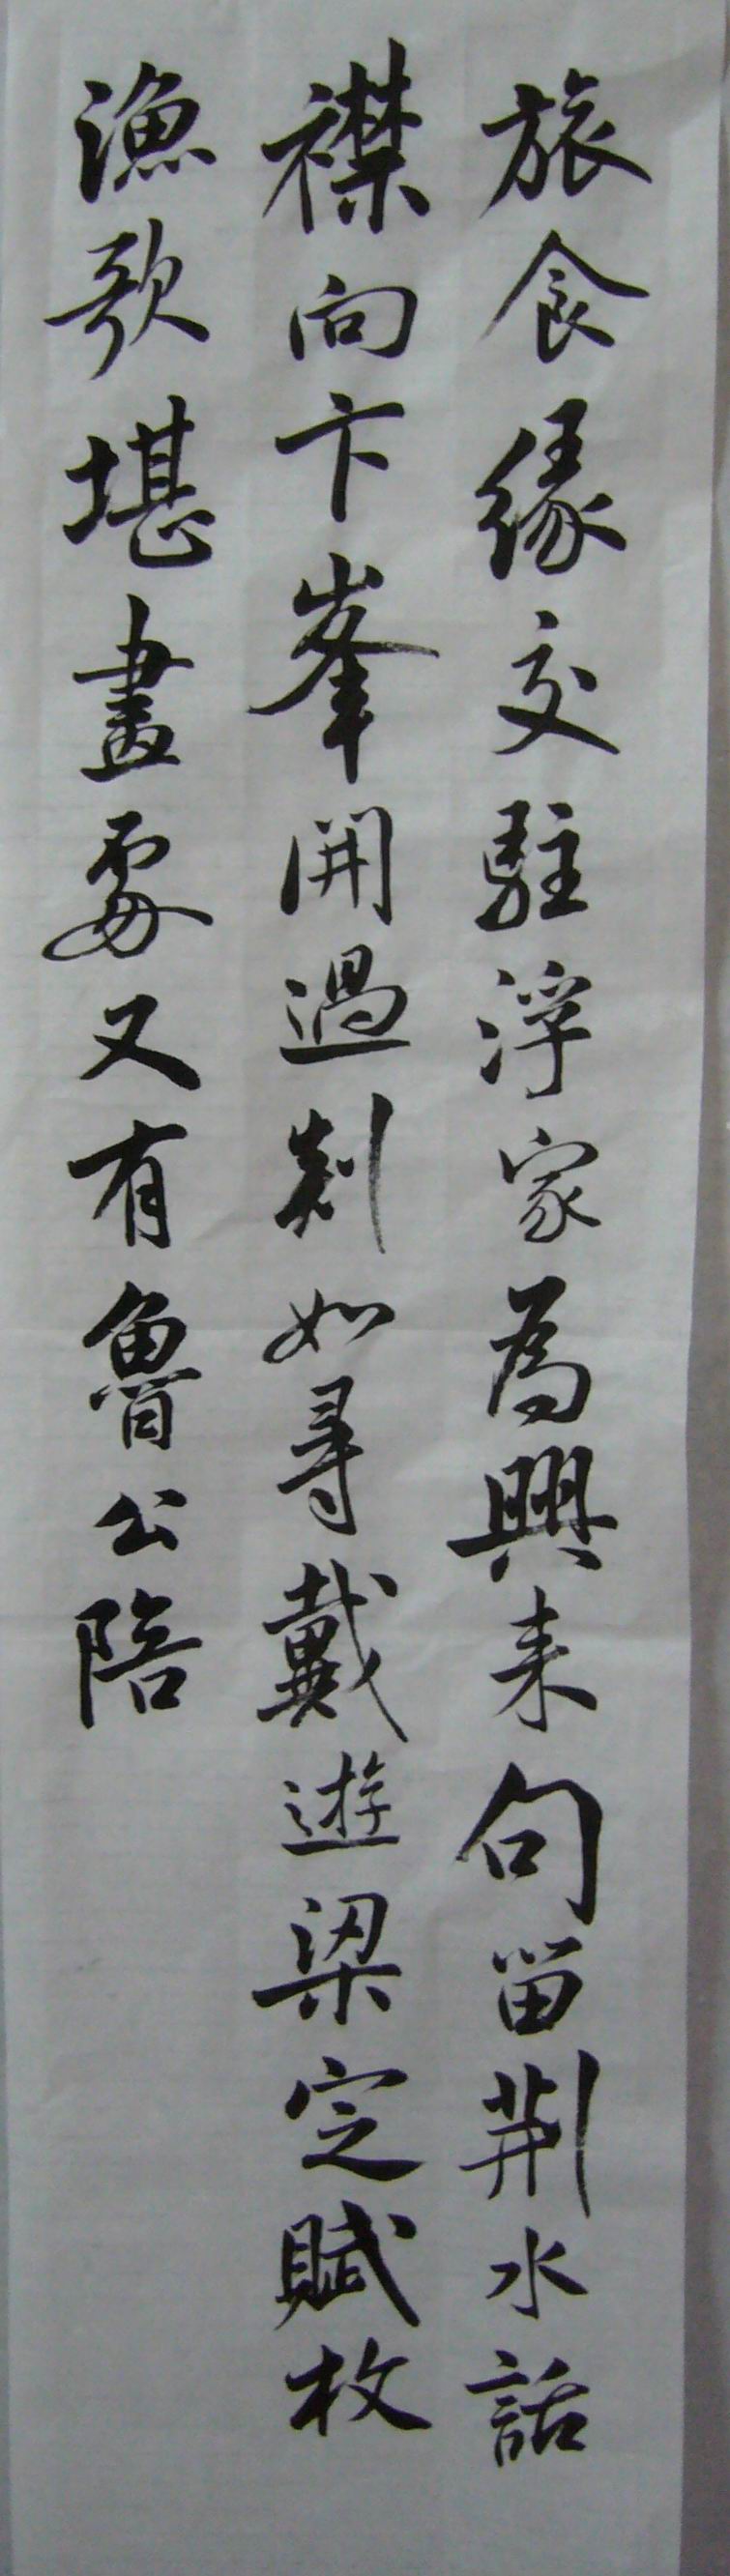 旅食緣交駐浮家為興来句留荆水話
襟向卞峯開過剡如尋戴遊梁定賦枚
漁歌堪畫處又有魯公陪